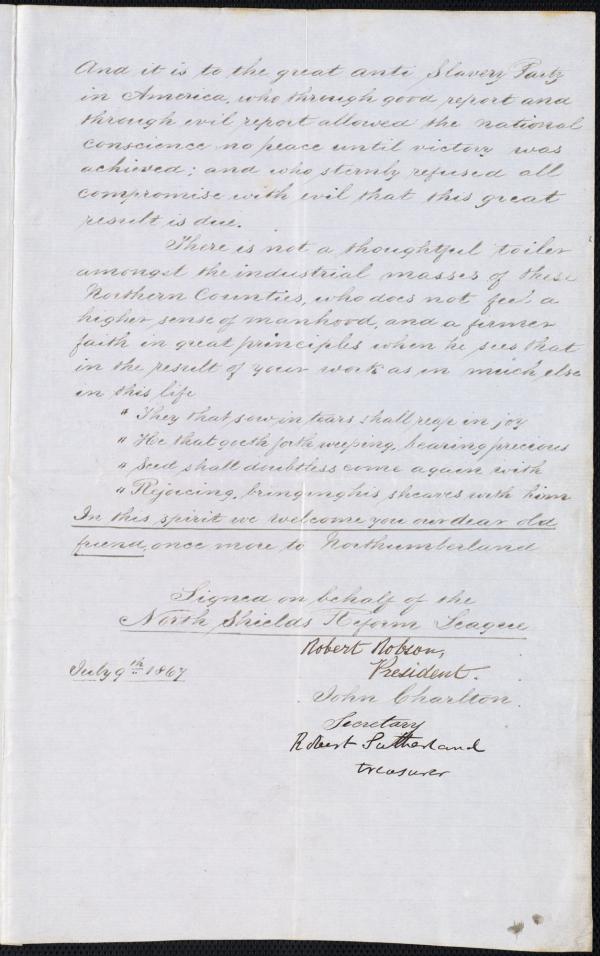 And it is to the great anti Slavery Party
in America, who through good report and
through evil report allowed the national
conscience no peace until victory was
achieved; and who sternly refused all
compromise with evil that this great
result is due.
There is not a thoughtful toiler
amongst the industrial masses of these
Northern Counties, who does not feel a
higher sense of manhood, and a firmer
faith in great principles when he sees that
in the result of your work as in much else
in this life
" They that sow in tears shall reap in joy
" He that goeth forth weeping, bearing precious
" Seed shall doubtless come again with
" Rejoicing, bringing his sheaves with him
In this spirit we welcome you our dear old
friend, once more to Northumberland
Signed on behalf of the
North Shields Reform League
Robert Robson,
President.
July 9th 1867
John Charlton.
Secretary
Robert Sutherland
treasurer